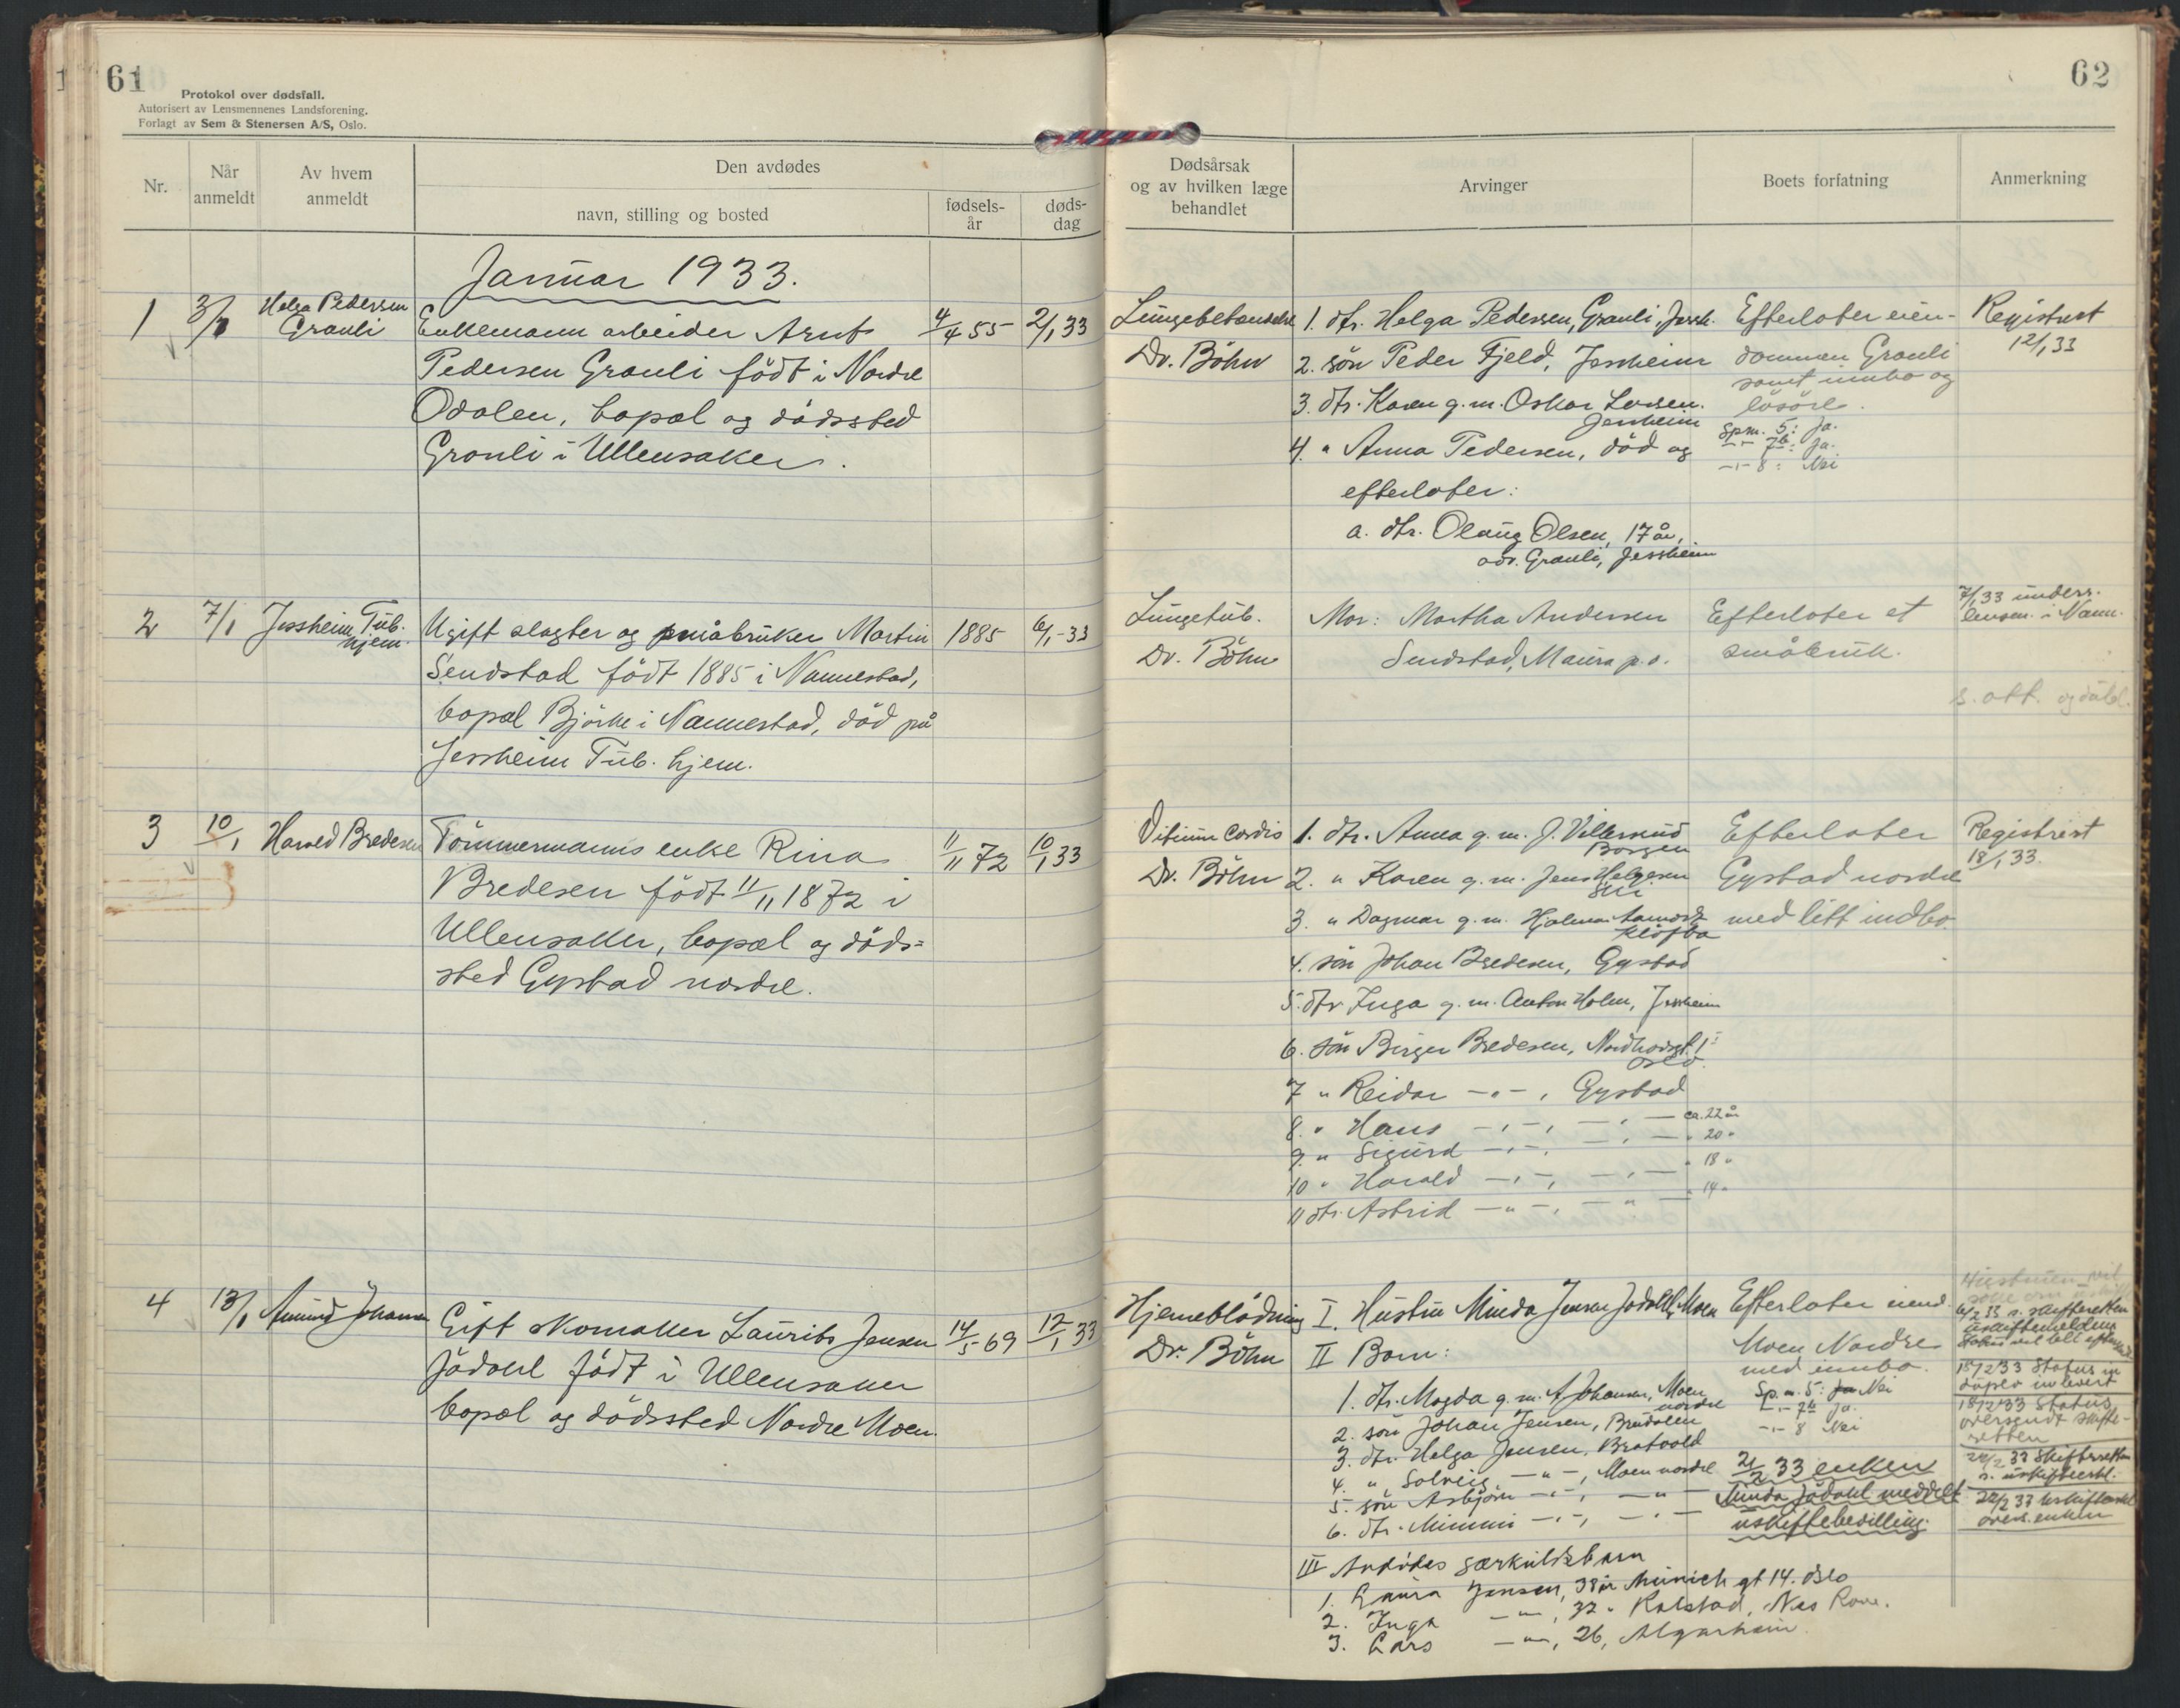 61
Protokol over dødsfall.
Autorisert av Lensmennenes Landsforening.
Forlagt av Sem & Stenersen A/S, Oslo.
Nr.
Når anmeldt
Av hvem anmeldt
Den avdødes
navn, stilling og bosted
fødsels-år
døds-dag
Januar 1933.
1 3/1 Helga Pedersen
Granli
Enkemann arbeider Arnt 4/4 55 2/1 33
Pedersen Granli født i Nordre
Odalen, bopæl og dødssted
Granli i Ullensaker.
2 7/1 Jessheim Tub.
hjem.
Ugift slagter og småbruker Martin 1885 6/1-33
Sendstad født 1885 i Nannestad,
bopæl Bjørke i Nannestad, død på
Jessheim Tub. hjem.
3 10/1 Harald Bredesen
Tømmermanns enke Rina 11/11 72 10/1 33
Bredesen født 11/11 1872 i
Ullensaker, bopæl og døds=
sted Gystad nordre.
4 13/1 Amund Johansen
Gift skomaker Laurits Jensen 14/5-69 12/1 33
Jødahl født i Ullensaker
bopæl og dødssted Nordre Moen.
62
Dødsårsak
og av hvilken læge
behandlet
Arvinger
Boets forfatning
Anmerkning
Lungebetændelse
Dr. Böhn
1. dtr. Helga Pedersen, Granli, Jessh.
2. søn Peder Fjeld, Jessheim
3. dtr. Karen g.m. Oskar Larsen.
Jessheim
4. " Anna Pedersen, død og
efterlater:
a. dtr. Olaug Olsen, 17 år,
adr. Granli, Jessheim
Efterlater eien-
dommen Granli
samt innbo og
løsøre.
Spm. 5: Ja.
-"- 7b: Ja.
-"- 8: Nei
Registrert
12/1 33
Lungetub.
Dr. Böhn
Mor: Martha Andersen
Sendstad, Maura p.o.
Efterlater et
småbruk.
7/1 33 underr.
lensm. i Nann.
s. att.
Vitium cordis
Dr. Böhn
1. dtr. Anna g.m. J. Villersrud
Borgen
2. " Karen g.m. Jens Helgesen
3. " Dagmar g.m. Hjalmar Aamodt
Kløfta
4. søn Johan Bredesen, Gystad
5. dtr Inga g.m. Anton Holm, Jessheim
6. søn Birger Bredesen,
Oslo.
7 " Reidar -"-, Gystad
8. " Hans -"-, -"- ca. 22 år
9. " Sigurd -"-, -"- " 20 "
10 " Harald -"-, -"- " 18 "
11 dtr. Astrid -"-, -"- " 14 "
Efterlater
Gystad nordre
med litt indbo.
Registrert
18/1 33.
Hjerneblødning
Dr. Böhn
I. Hustru Minda Jensen Jødahl, Moen
II Barn:
1. dtr. Magda g.m. A Johansen, Moen
nordre
2. søn Johan Jensen, Brudalen
3. dtr. Helga Jensen, Bratvold
4. " Solveig -"-, Moen nordre
5. søn Asbjørn -"-, -"-
6. dtr. Mimmi -"-, -"-
III Avdødes særkulsbarn
1. Laura Jensen, 38 år Munich gt 14. Oslo
2. Inga -"-, 32 " Rolstad, Nes Rom.
3. Lars -"-, 26, Algarheim.
Efterlater eiend.
Moen Nordre
med innbo.
Sp.m. 5: Ja Nei
-"- 7b Ja.
-"- 8 Nei
21/2 33 enken
Minda Jødahl meddelt
uskiftebevilling.
6/2 33 s. skifteretten
15/2 33 Status in
duplo innlevert
18/2 33 Status
oversendt skifte-
retten
22/2 33 Skifteretten
s. uskifteerkl.